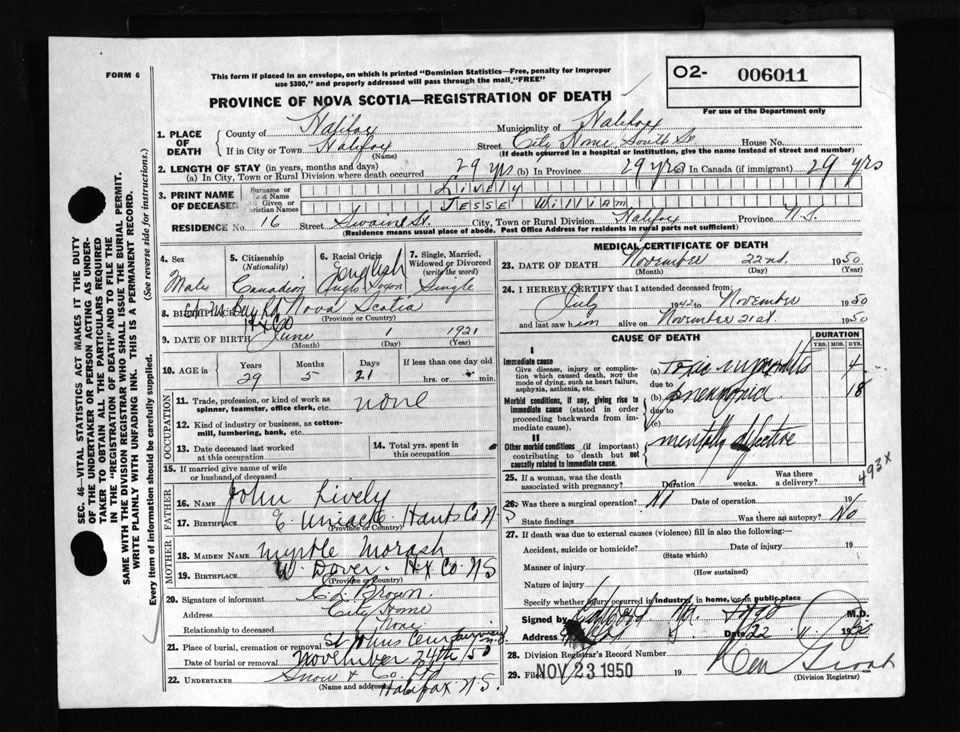 FORM 6
This form if placed in an envelope, on which is printed "Dominion Statistics—Free, penalty for improper
use $300," and properly addressed will pass through the mail, "FREE"
PROVINCE OF NOVA SCOTIA—REGISTRATION OF DEATH
02- 006011
For use of the Department only
SEC. 46—VITAL STATISTICS ACT MAKES IT THE DUTY
OF THE UNDERTAKER OR PERSON ACTING AS UNDER-
TAKER TO OBTAIN ALL THE PARTICULARS REQUIRED
IN THE "REGISTRATION OF DEATH" AND TO FILE THE
SAME WITH THE DIVISION REGISTRAR WHO SHALL ISSUE THE BURIAL PERMIT.
WRITE PLAINLY WITH UNFADING INK. THIS IS A PERMANENT RECORD.
Every item of information should be carefully supplied. (See reverse side for instructions.)
1. PLACE OF DEATH
County of Halifax Municipality of Halifax
If in City or Town Halifax (Name) Street City Home, South St House No.
(If death occurred in a hospital or institution, give the name instead of street and number)
2. LENGTH OF STAY (in years, months and days)
(a) In City, Town or Rural Division where death occurred 29 yrs (b) In Province 29 yrs (c) In Canada (if immigrant) 29 yrs
3. PRINT NAME OF DECEASED
Surname or Last Name Lively
All Given or Christian Names Jesse William
RESIDENCE No. 16 Street Swaine St. City, Town or Rural Division Halifax Province N.S.
(Residence means usual place of abode. Post Office Address for residents in rural parts not sufficient)
4. Sex Male
5. Citizenship (Nationality) Canadian
6. Racial Origin English Anglo Saxon
7. Single, Married, Widowed or Divorced (write the word) Single
8. BIRTHPLACE Bay Rd Nova Scotia
Hx Co (Province or Country)
9. DATE OF BIRTH June (Month) 1 (Day) 1921 (Year)
10. AGE in Years 29 Months 5 Days 21 If less than one day old hrs. or min.
OCCUPATION
11. Trade, profession, or kind of work as spinner, teamster, office clerk, etc. none
12. Kind of industry or business, as cotton-mill, lumbering, bank, etc.
13. Date deceased last worked at this occupation
14. Total yrs. spent in this occupation
15. If married give name of wife or husband of deceased
FATHER
16. Name John Lively
17. Birthplace E. Uniacke Hants Co N.S
(Province or Country)
MOTHER
18. Maiden Name Myrtle Morash
19. Birthplace W. Dover. Hx Co NS
(Province or Country)
20. Signature of informant Brown.
Address City Home
Relationship to deceased None
21. Place of burial, cremation or removal St Johns Cem Fairview N.S.
Date of burial or removal November 24th/50
22. UNDERTAKER Snow & Co
(Name and address) Halifax N.S.
MEDICAL CERTIFICATE OF DEATH
23. DATE OF DEATH November (Month) 22nd. (Day) 1950 (Year)
24. I HEREBY CERTIFY that I attended deceased from:
July 1942 to November 1950
and last saw him alive on November 21st. 1950
CAUSE OF DEATH
DURATION
YRS. MOS. DYS.
I
Immediate cause
Give disease, injury or complication which caused death, not the mode of dying, such as heart failure, asphyxia, asthenia, etc.
(a) Toxic myocarditis 4
due to
Morbid conditions, if any, giving rise to immediate cause (stated in order proceeding backwards from immediate cause)
(b) pneumonia 18
due to
(c)
II
Other morbid conditions (if important) contributing to death but not causally related to immediate cause.
mentally defective
493x
25. If a woman, was the death associated with pregnancy? Duration weeks. Was there a delivery?
26. Was there a surgical operation? No Date of operation 19
State findings Was there an autopsy? No
27. If death was due to external causes (violence) fill in also the following:
Accident, suicide or homicide? Date of injury 19
(State which)
Manner of injury
(How sustained)
Nature of injury
Specify whether injury occurred in industry, in home, or in public place
Signed by M.D.
Address Date 22 11 1950
28. Division Registrar's Record Number
29. Filed NOV 23 1950 19
(Division Registrar)